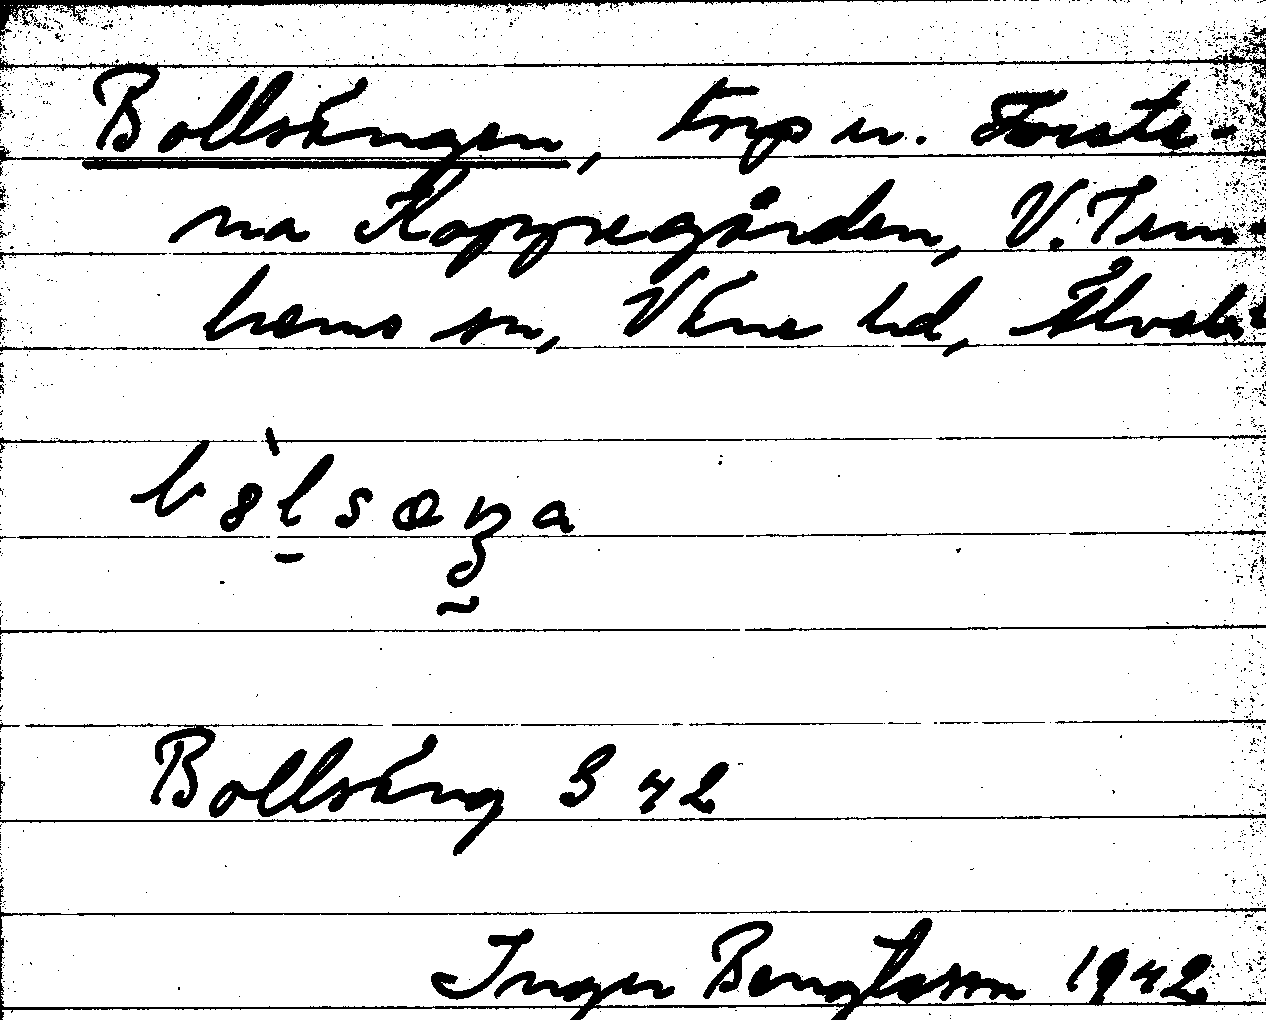 Bollsängen, torp u. Forste-
na Kopparegården, V. Tun-
hems sn, Väne hd, Älvsb.
Bollsäng G 42
Inger Bengtsson 1942